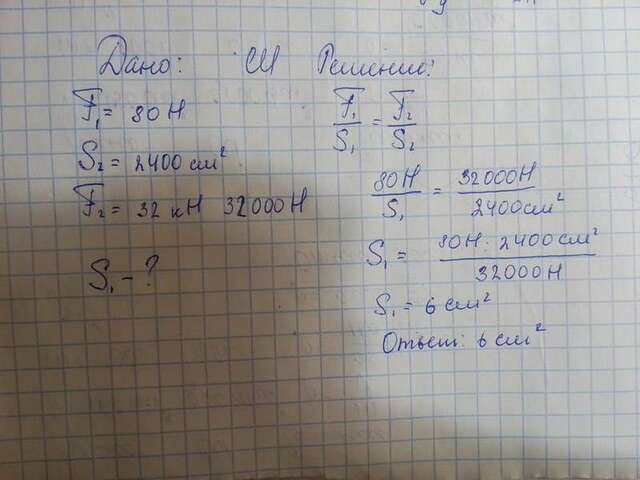 Дано: СИ Решение:
F₁ = 80 Н
S₂ = 2400 см²
F₂ = 32 кН 32000 Н
S₁ - ?
F₁/S₁ = F₂/S₂
80Н/S₁ = 32000Н/2400см²
S₁ = 80Н · 2400см²/32000Н
S₁ = 6 см²
Ответ: 6 см²